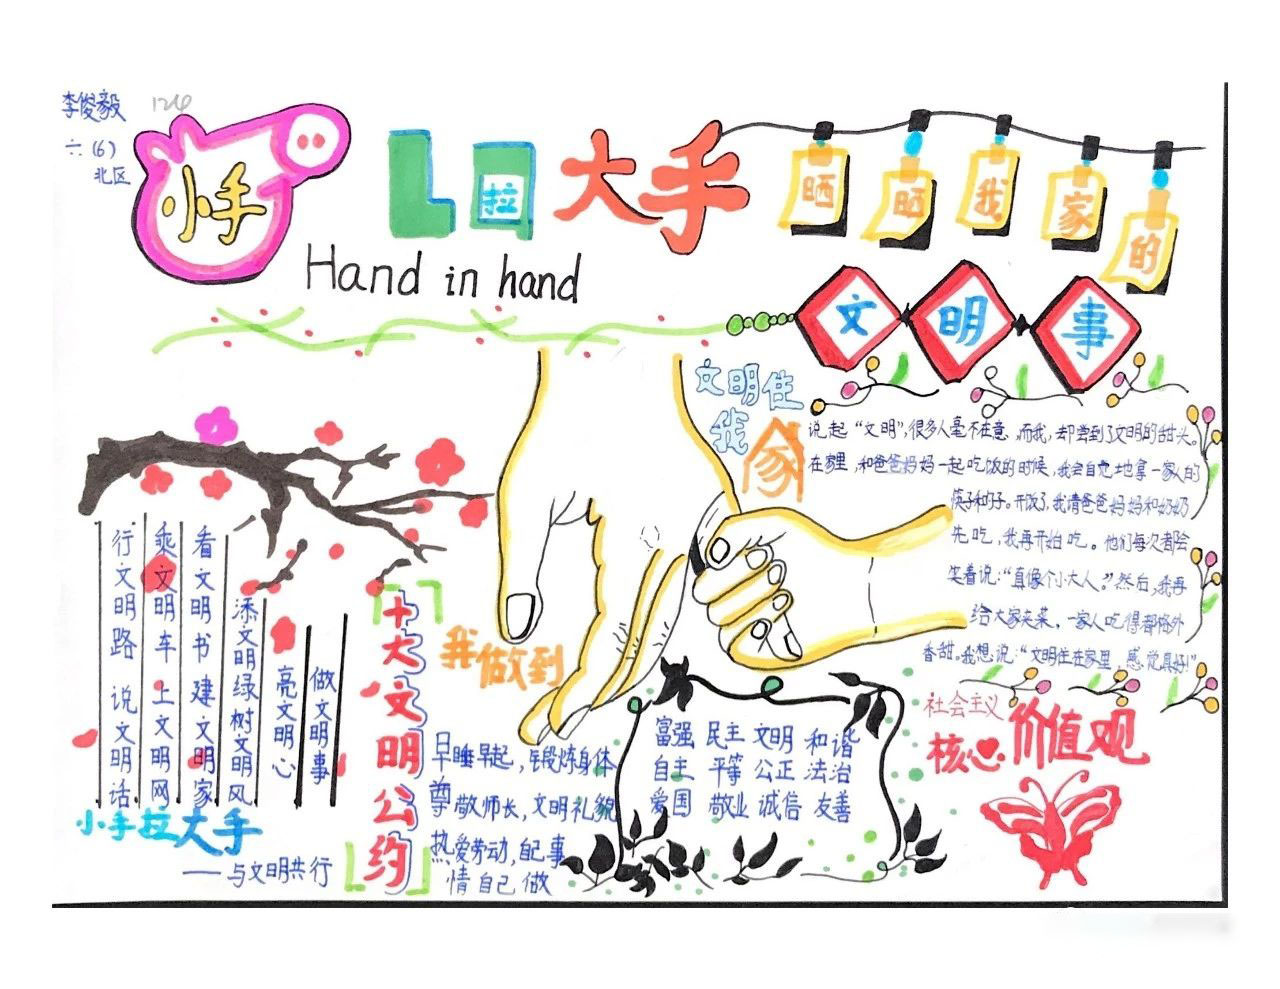 李俊毅 124
六(6)
北区
小手
拉
大手
Hand in hand
晒晒我家的
文明事
文明住
我家
说起“文明”,很多人毫不在意,而我,却尝到了文明的甜头。
在家里,和爸爸妈妈一起吃饭的时候,我会自觉地拿一家人的
筷子和勺子。开饭了,我请爸爸妈妈和奶奶
先吃,我再开始吃。他们每次都会
笑着说:“真像个小大人。”然后,我再
给大家夹菜,一家人吃得都格外
香甜。我想说:“文明住在家里,感觉真好!”
行文明路 说文明话
乘文明车 上文明网
看文明书 建文明家
添文明绿 树文明风
亮文明心
做文明事
小手拉大手
——与文明共行
十大文明公约
我做到
早睡早起,锻炼身体
尊敬师长,文明礼貌
热爱劳动,自己事
情自己做
富强 民主 文明 和谐
自主 平等 公正 法治
爱国 敬业 诚信 友善
社会主义
核心价值观